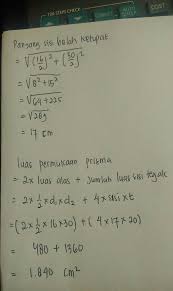 CORRECT
AUTO
COST
Panjang sisi belah ketupat
= √(16/2)² + (30/2)²
= √8² + 15²
= √64 + 225
= √289
= 17 cm
luas permukaan prisma
= 2 x luas alas + jumlah luas sisi tegak
= 2 x ½ x d₁ x d₂ + 4 x sisi x t
= (2 x ½ x 16 x 30) + (4 x 17 x 20)
= 480 + 1360
= 1.840 cm²